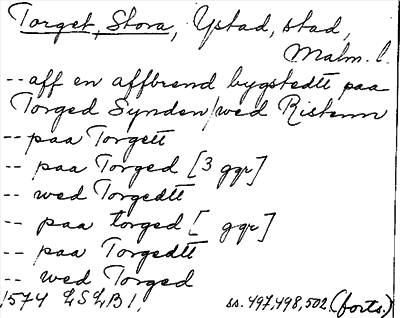 Torget, Stora, Ystad, stad,
Malm. l.
-- aff en affbrend bygstedtt paa
Torged Synden/wed Ristenn
-- paa Torgett
-- paa Torged [3 ggr]
-- wed Torgedtt
-- paa torged [ ggr]
-- paa Torgedtt
-- wed Torged
1574 LSLB 1, ss. 497,498,502 (forts.)